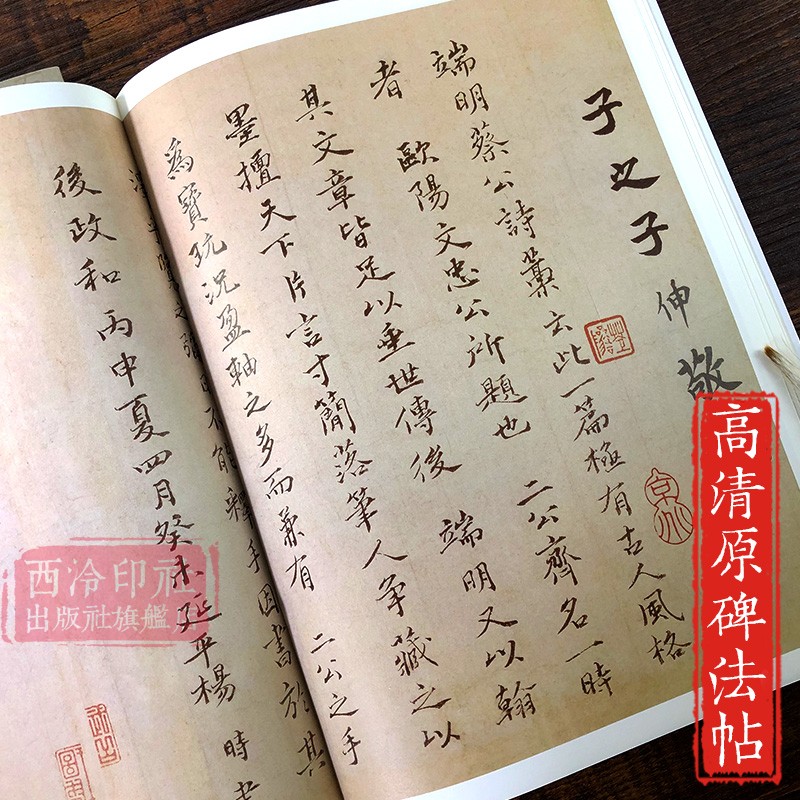 子之子
伸
敬
端明蔡公詩藁云此一篇極有古人風格
者
歐陽文忠公所題也
二公齊名一時
其文章皆足以垂世傳後
端明又以翰
墨擅天下片言寸簡落筆人争藏之以
為寶玩況盈軸之多而兼有
二公之手
不能釋手因書於其
後政和丙申夏四月癸未延平楊
時
高清原碑法帖
西泠印社
出版社旗艦